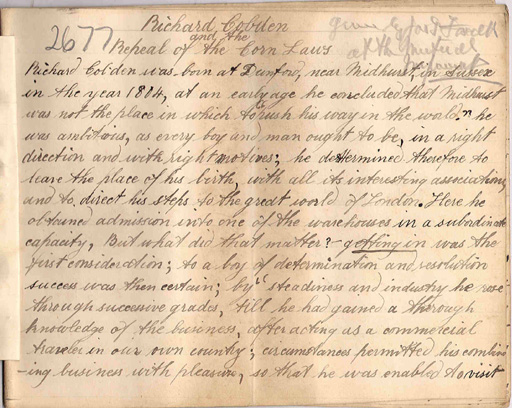 Richard Cobden
and the
Repeal of the Corn Laws
2677
given
at the Mutual
Richard Cobden was born at Dunford, near Midhurst, in Sussex
in the year 1804, at an early age he concluded that Midhurst
was not the place in which to push his way in the world." he
was ambitious, as every boy and man ought to be, in a right
direction and with right motives; he determined therefore to
leave the place of his birth, with all its interesting associations,
and to direct his steps to the great world of London. Here he
obtained admission into one of the warehouses in a subordinate
capacity, But what did that matter? - getting in was the
first consideration; to a boy of determination and resolution
success was then certain; by steadiness and industry he rose
through successive grades, till he had gained a thorough
knowledge of the business, after acting as a commercial
traveler in our own country; circumstances permitted his combin
-ing business with pleasure, so that he was enabled to visit